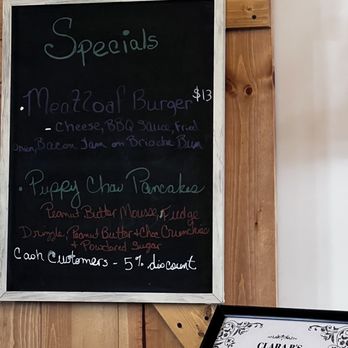 Specials
• Meatloaf Burger $13
- Cheese, BBQ Sauce, Fried
Onion, Bacon Jam on Brioche Bun
• Puppy Chow Pancakes
Peanut Butter Mousse, Fudge
Drizzle, Peanut Butter & Choc Crunchies
& Powdered Sugar
Cash Customers - 5% discount
CLARA B'S